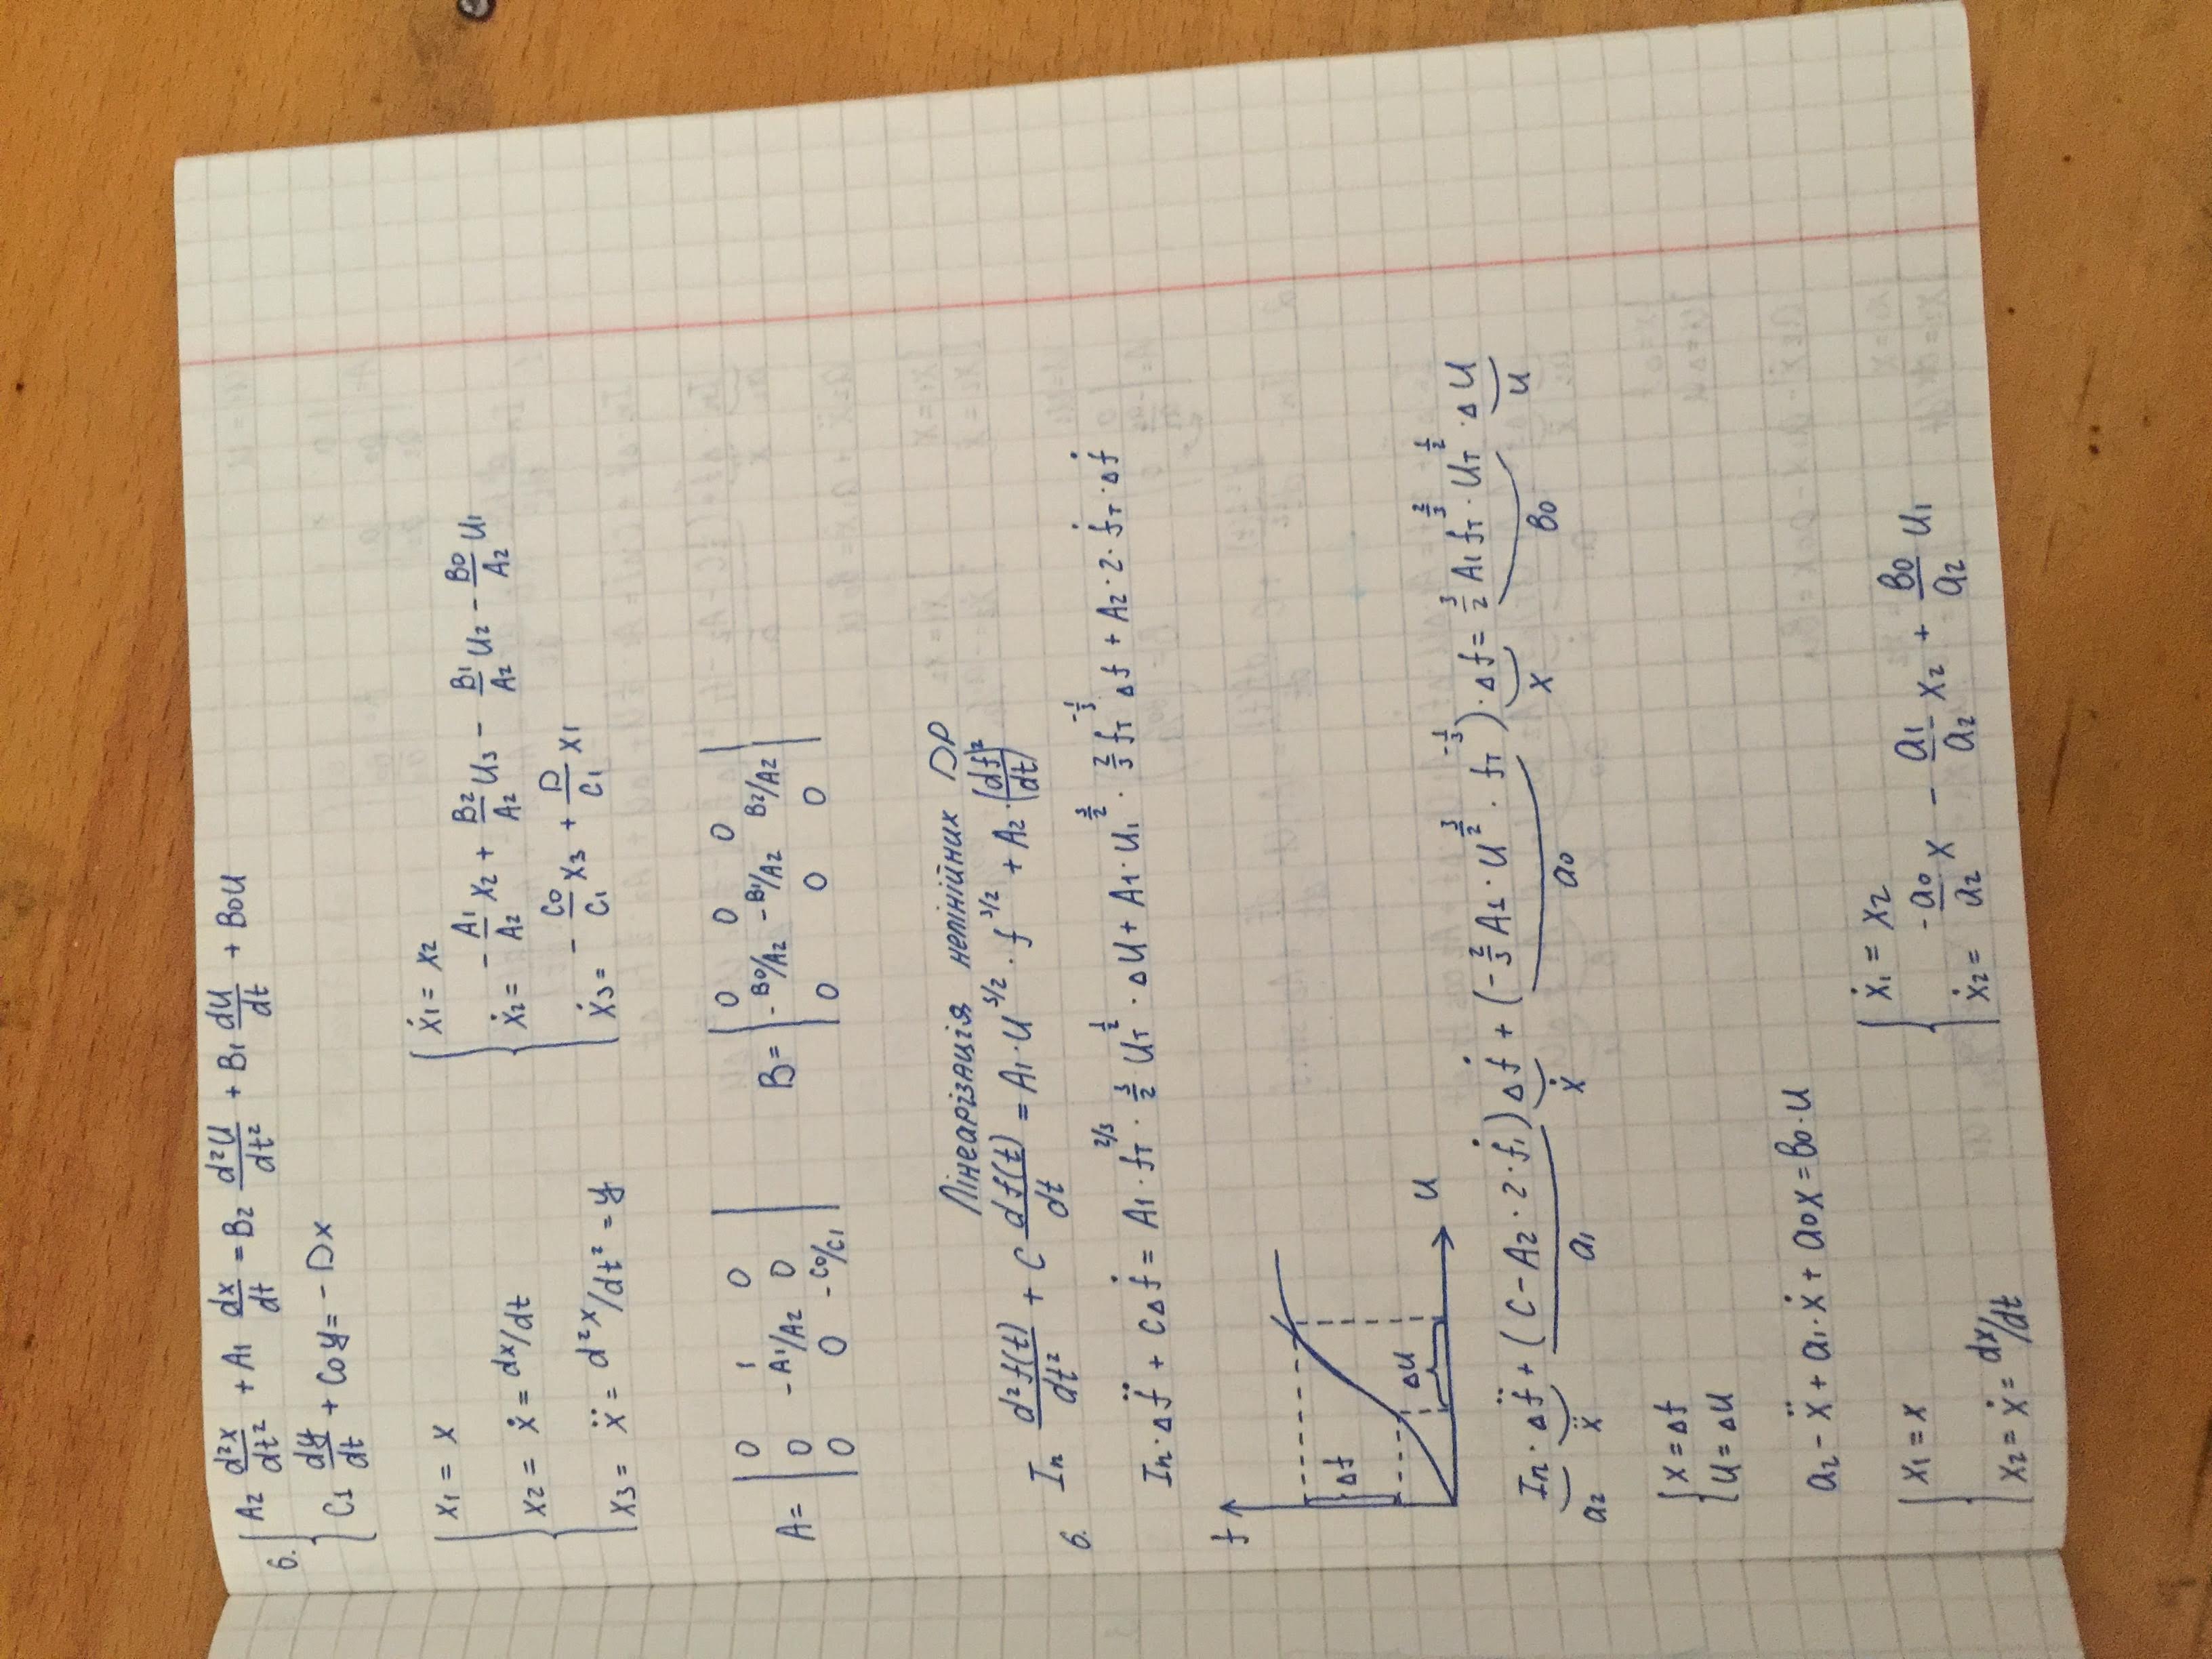 6. { A₂ d²x/dt² + A₁ dx/dt = B₂ d²U/dt² + B₁ dU/dt + B₀U
C₁ dy/dt + C₀y = - Dx
x₁ = x
x₂ = ẋ = dx/dt
x₃ = ẍ = d²x/dt² = y
ẋ₁ = x₂
ẋ₂ = - A₁/A₂ x₂ + B₂/A₂ U₃ - B₁/A₂ U₂ - B₀/A₂ U₁
ẋ₃ = - C₀/C₁ x₃ + D/C₁ x₁
A = | 0 1 0 |
| 0 -A₁/A₂ 0 |
| 0 0 -C₀/C₁ |
B = | 0 0 0 |
| -B₀/A₂ -B₁/A₂ B₂/A₂ |
| 0 0 0 |
Лінеарізація нелінійних DP
6. Iₙ d²f(t)/dt² + C df(t)/dt = A₁·U^3/2 · f^3/2 + A₂·(df/dt)²
Iₙ·Δf̈ + CΔḟ = A₁·f_T^2/3 · 3/2 U_T^1/2 · ΔU + A₁·U₁^3/2 · 2/3 f_T^-1/3 Δf + A₂·2·ḟ_T·Δḟ
f
Δf
ΔU
U
Iₙ·Δf̈ + (C - A₂·2·ḟ₁)Δḟ + (-2/3 A₁·U^3/2 · f_T^-1/3)·Δf = 3/2 A₁ f_T^2/3 · U_T^1/2 · ΔU
a₂ ẍ a₁ ẋ a₀ x в₀ u
x = Δf
U = ΔU
a₂ - ẍ + a₁·ẋ + a₀x = в₀·U
x₁ = x
x₂ = ẋ = dx/dt
ẋ₁ = x₂
ẋ₂ = -a₀/a₂ x - a₁/a₂ x₂ + в₀/a₂ U₁